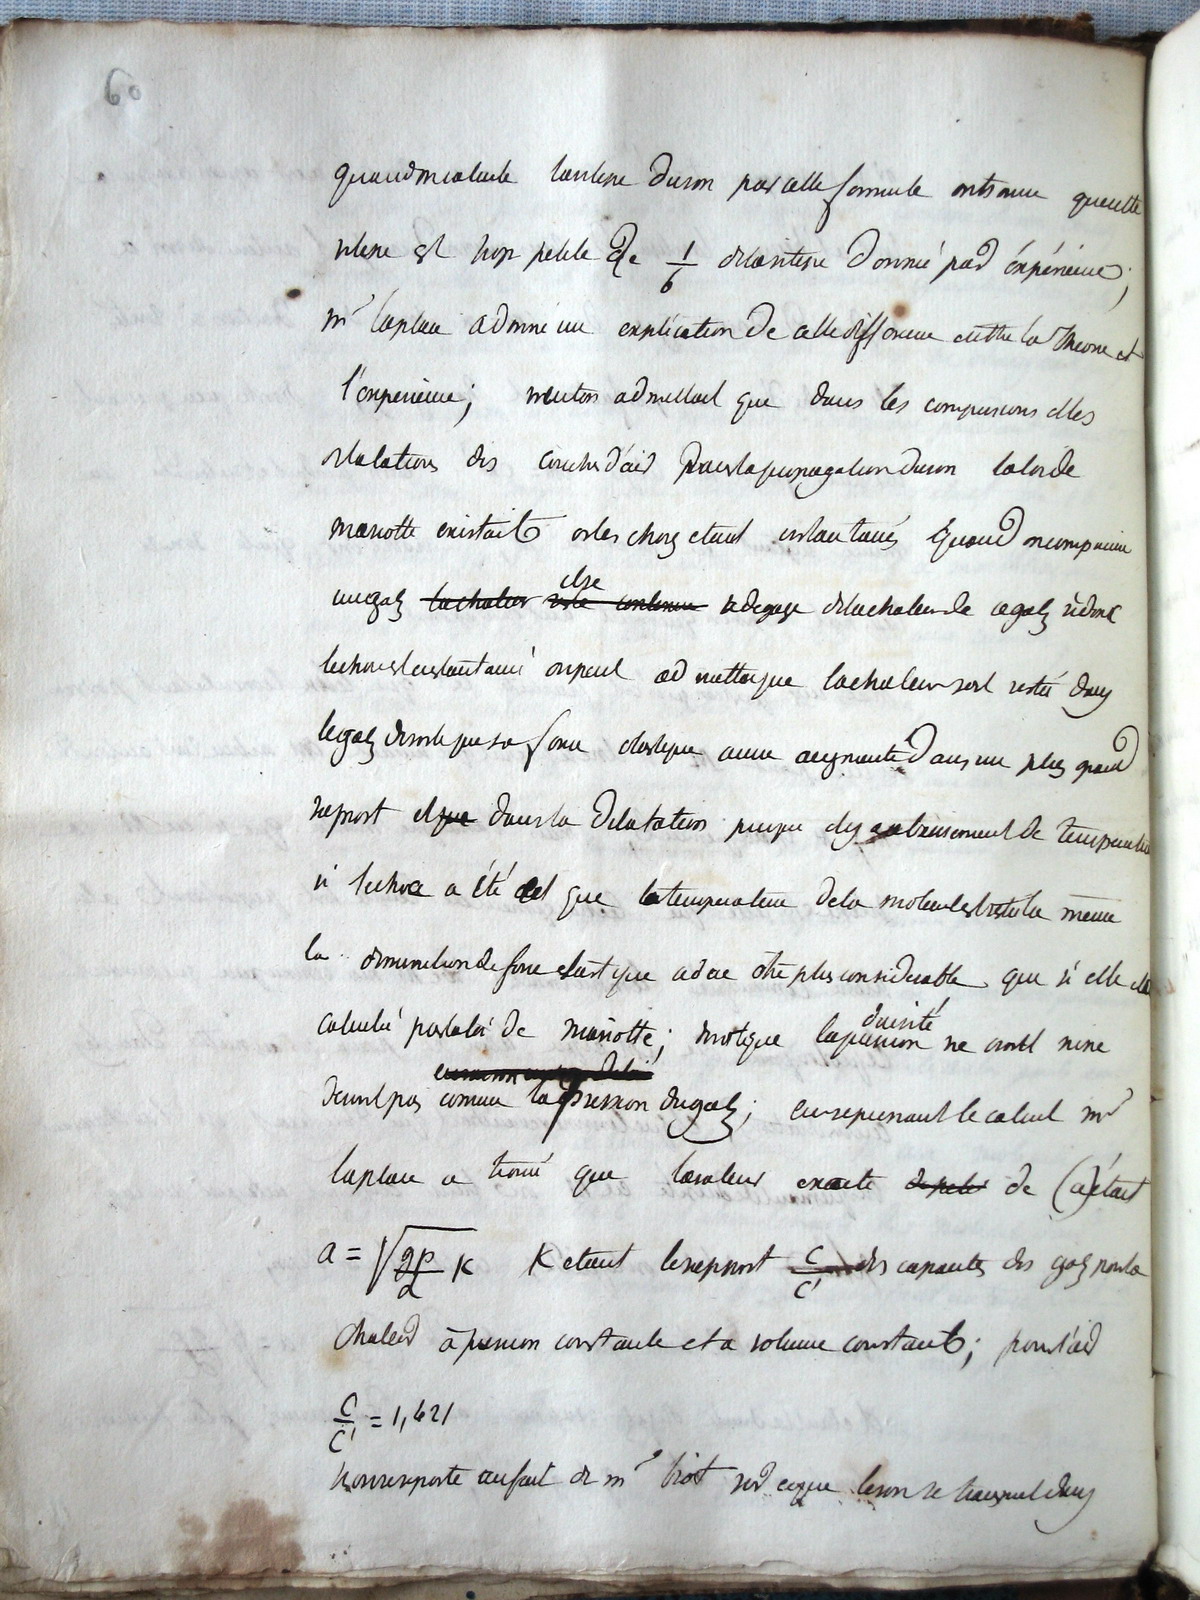 60
quand on calcule la vitesse du son par cette formule on trouve que cette
vitesse est trop petite de 1/6 de la vitesse donné par l'expérience;
mr laplace a donné une explication de cette difference entre la theorie et
l'experience; newton admettait que dans les compressions et les
dilatations des couches d'air dans la propagation du son la loi de
mariotte existait or les chocs etant instantanés quand on comprime
un gaz la chaleur reste contenue il se degage de la chaleur de ce gaz si donc
le choc est instantané on peut admettre que la chaleur soit restée dans
le gaz de sorte que sa force elastique aura augmenté dans un plus grand
raport et que dans la dilatation puisque il y a abaissement de temperature
si le choc a été tel que la temperature de la molecule reste la même
la diminution de force elastique a du etre plus considerable que si elle etait
calculée par la loi de mariotte; de sorte que la pression densité ne croit ni ne
decroit pas comme la pression du gaz; en reprenant le calcul mr
laplace a trouvé que la valeur exacte de (a) était
a = √(gp/d K) K etant le rapport c/c' des capacites des gaz pour la
chaleur à pression constante et a volume constant; pour l'air
c/c' = 1,421
on rapporte un fait de mr biot sur ce que le son se transmet dans